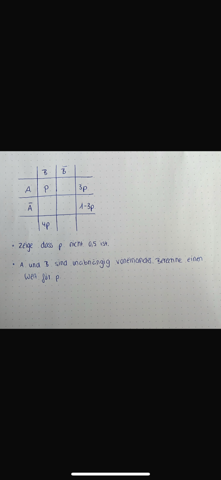 B B̄
A p 3p
Ā 1-3p
4p
• Zeige dass p nicht 0,5 ist.
• A und B sind unabhängig voneinander. Berechne einen
Wert für p.